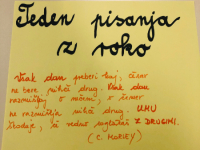 Teden pisanja
z roko
Vsak dan preberi kaj, česar
ne bere nihče drug. Vsak dan
razmišljaj o nečem, o čemer
ne razmišlja nihče drug. UMU
škoduje, če vedno soglašaš Z DRUGIMI.
(C. MORLEY)